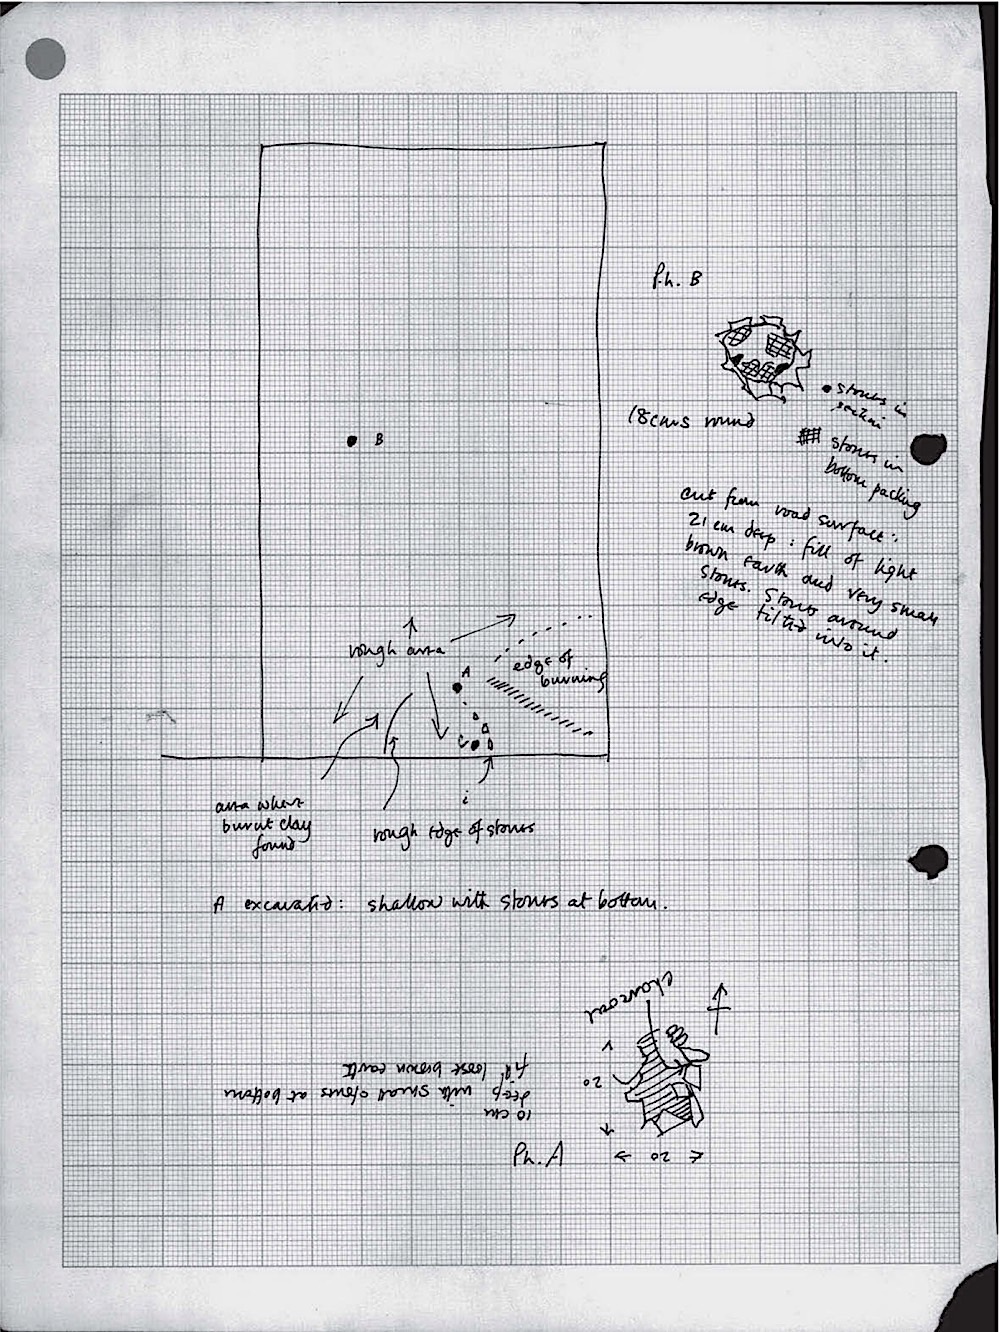 P.h. B
18cms round
• stones in
section
stones in
bottom packing
cut from road surface:
21 cm deep: fill of light
brown earth and very small
stones. Stones around
edge tilted into it.
B
rough area
edge of
burning
A
C
area where
burnt clay
found
rough edge of stones
A excavated: shallow with stones at bottom.
charcoal
20
10 cm
deep with small stones at bottom
fill loose brown earth
Ph. A
20